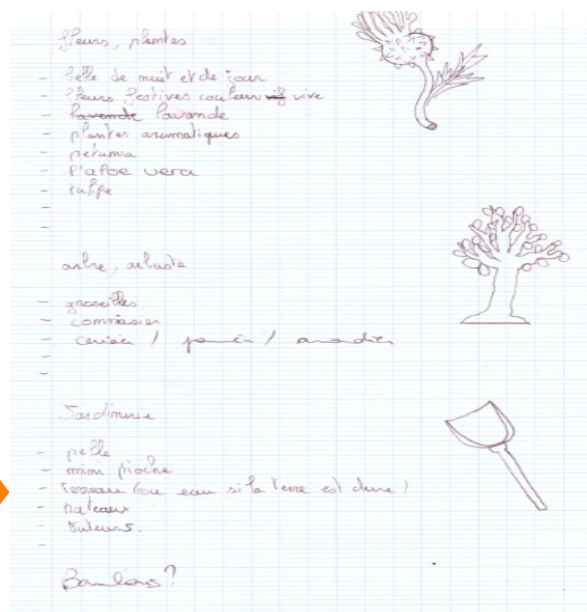 fleurs, plantes
- belle de nuit et de jour
- fleurs festives couleur vif vive
- lavende lavande
- plantes aromatiques
- petunia
- l'aloe vera
- tulipe
-
-
arbre, arbuste
- groseilles
-
- cerisier / / amandier
-
-
Jardinerie
- pelle
- mini pioche
- Terreau (ou eau si la terre est dure)
-
- tuteurs.
-
Bambous?